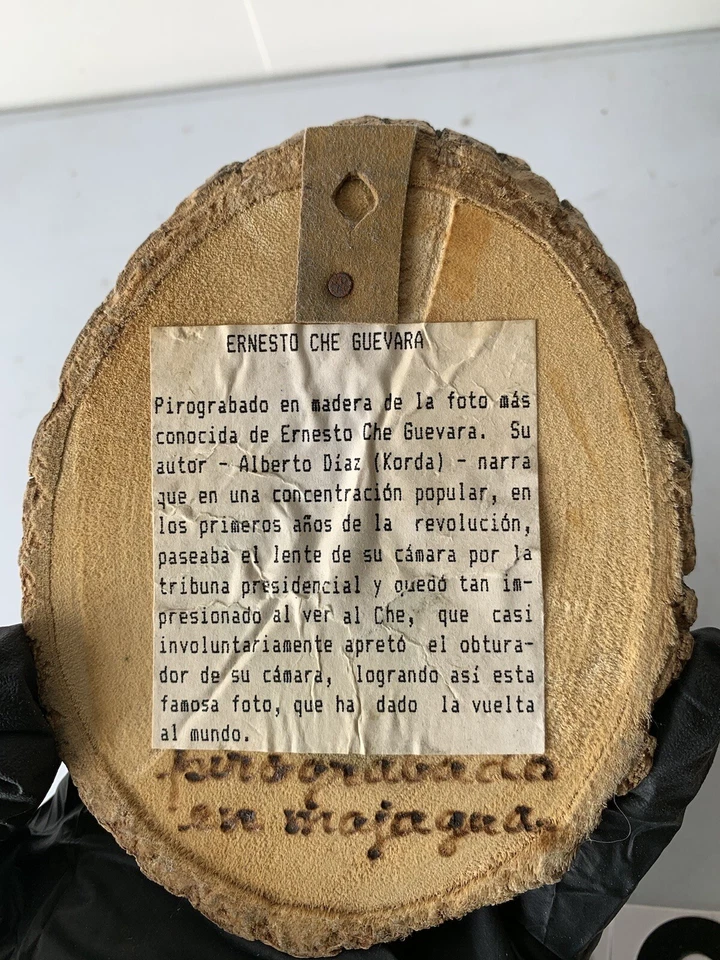 ERNESTO CHE GUEVARA
Pirograbado en madera de la foto más
conocida de Ernesto Che Guevara. Su
autor - Alberto Díaz (Korda) - narra
que en una concentración popular, en
los primeros años de la revolución,
paseaba el lente de su cámara por la
tribuna presidencial y quedó tan im-
presionado al ver al Che, que casi
involuntariamente apretó el obtura-
dor de su cámara, logrando así esta
famosa foto, que ha dado la vuelta
al mundo.
pirograbado
en majagua.